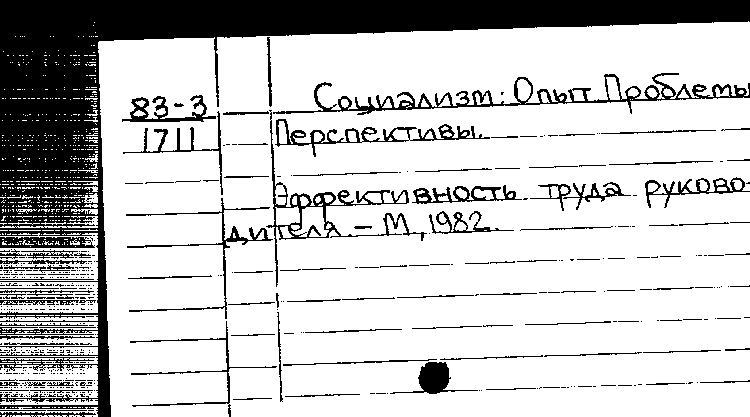 83-3 Социализм: Опыт. Проблемы
1711 Перспективы.
Эффективность труда руково-
дителя. - М., 1982.